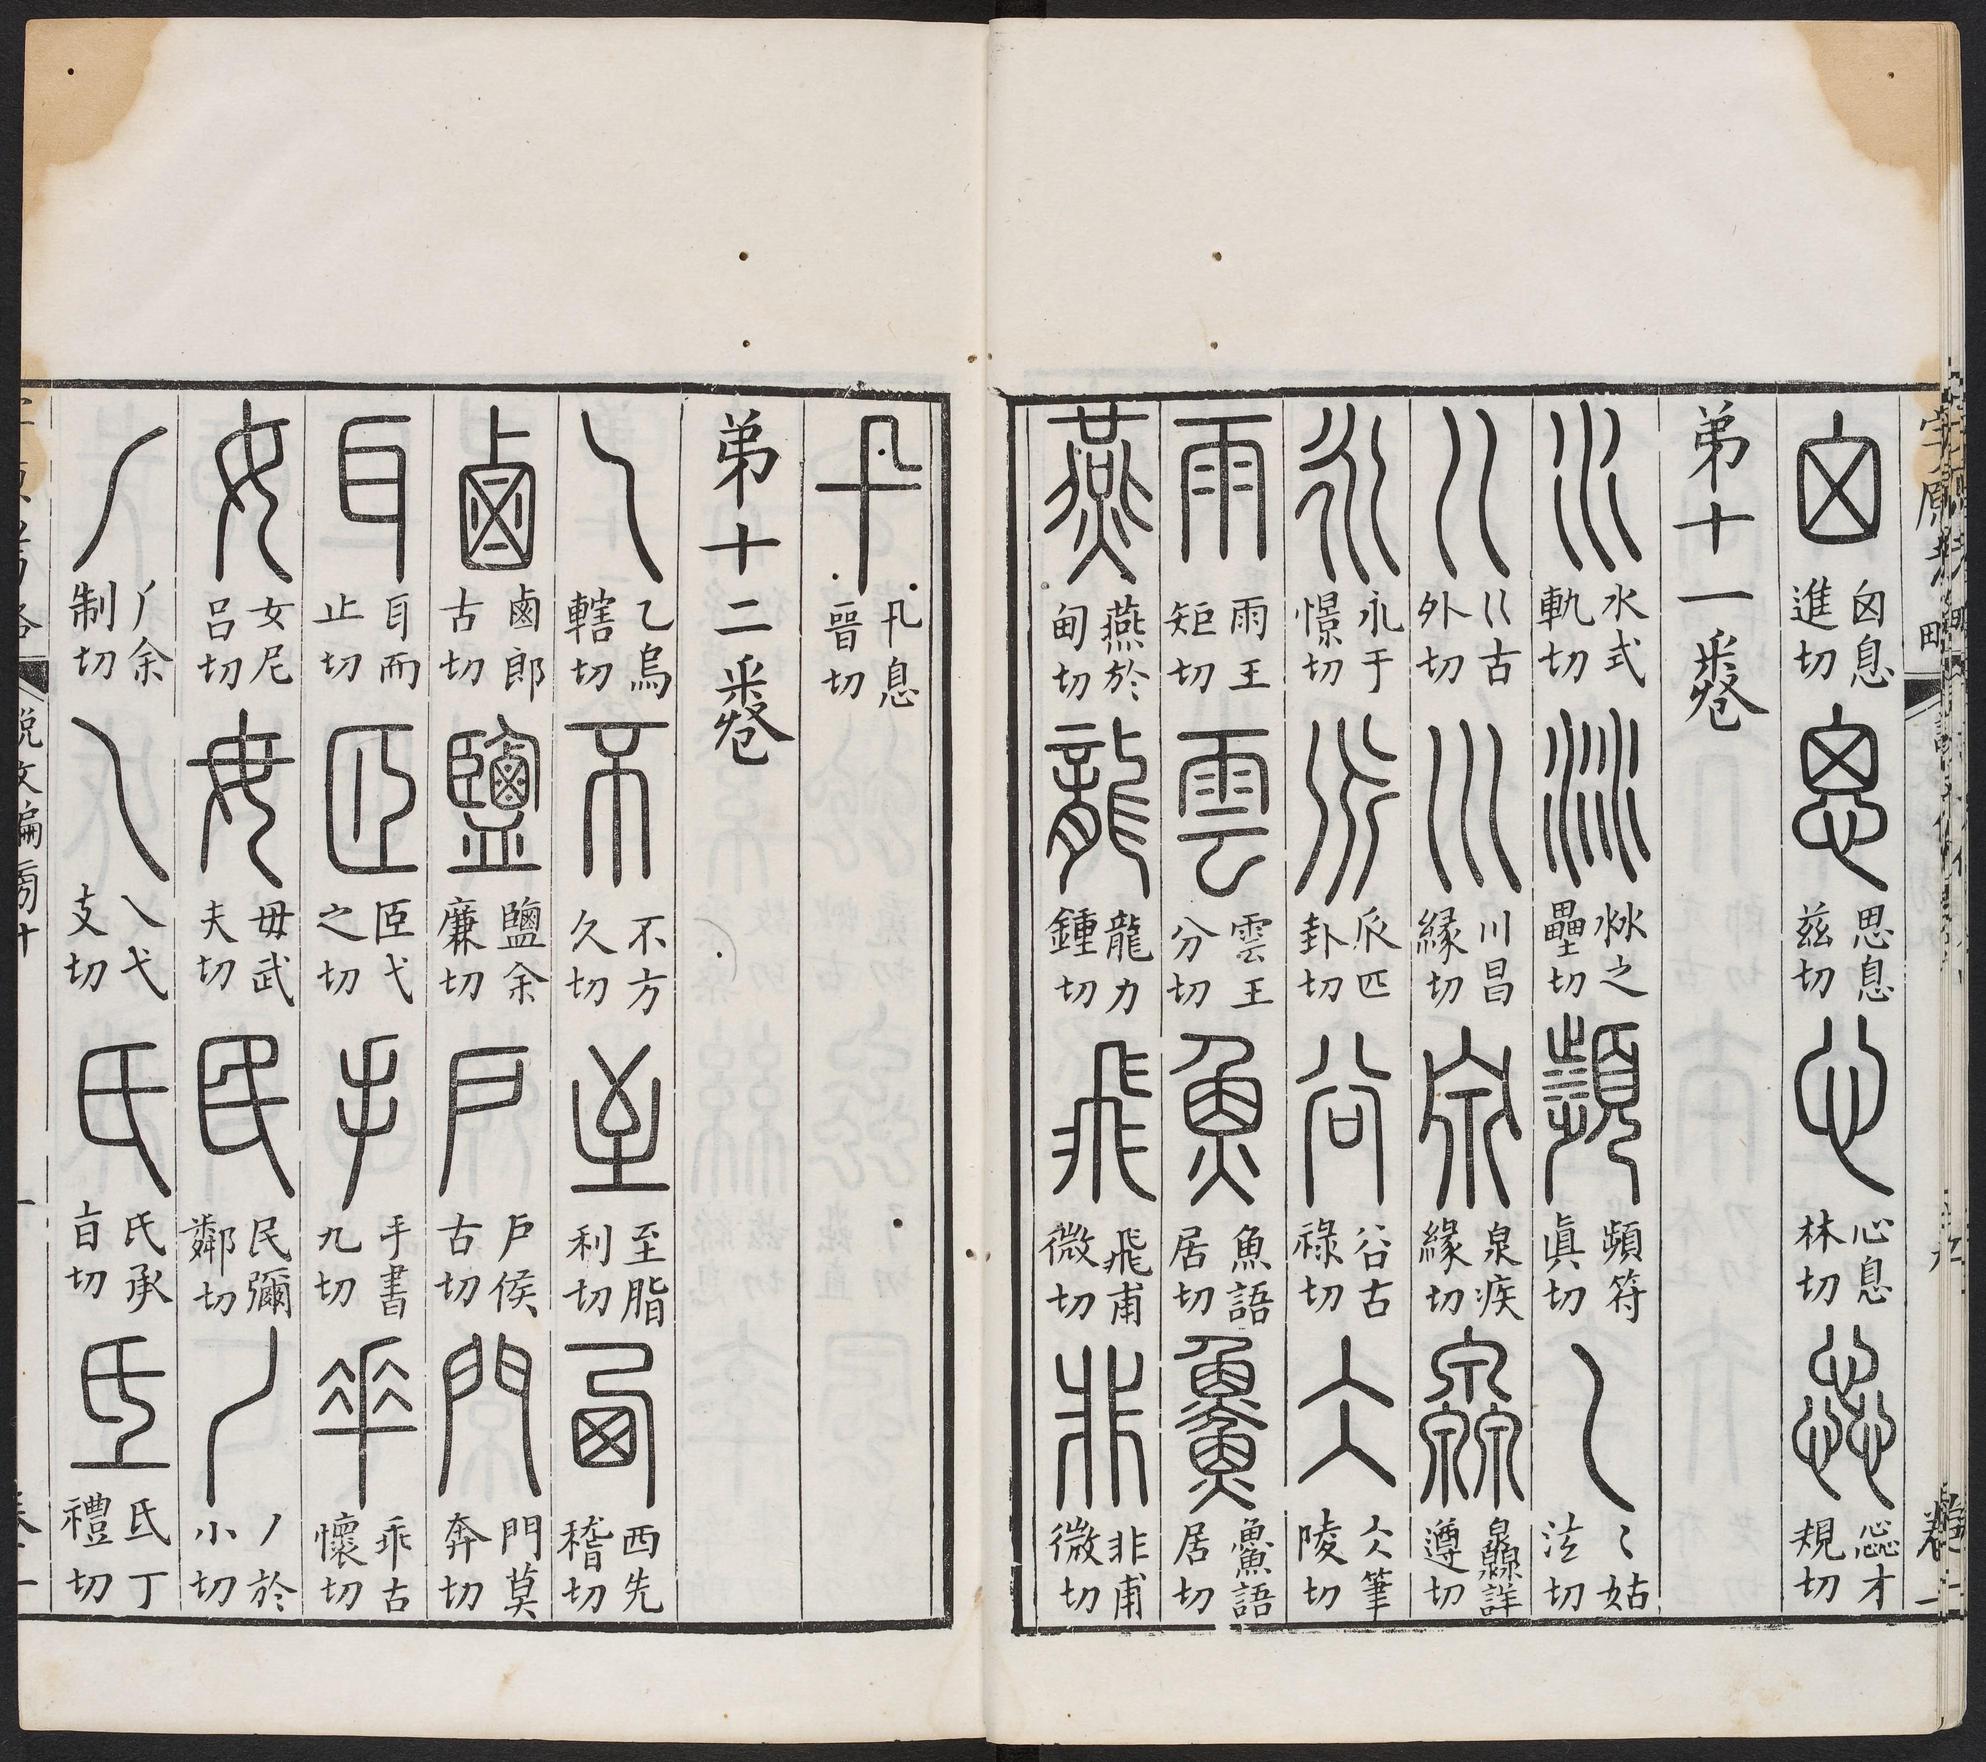 囟息進切 思息兹切 心息林切 惢才規切
弟十一𢍏
水式軌切 沝之壘切 頻符眞切 〻姑泫切
巜古外切 川昌緣切 泉疾緣切 灥詳遵切
永于憬切 𠂢匹卦切 谷古祿切 仌筆陵切
雨王矩切 雲王分切 魚語居切 𩺰語居切
燕於甸切 龍力鍾切 飛甫微切 非甫微切
卂息晉切
弟十二𢍏
乙烏轄切 不方久切 至脂利切 西先稽切
鹵郎古切 鹽余廉切 戶侯古切 門莫奔切
耳而止切 𦣞弋之切 手書九切 𠦬古懷切
女尼呂切 毋武夫切 民彌鄰切 丿於小切
𠂆余制切 乁弋支切 氏承旨切 氐丁禮切
說文偏旁十